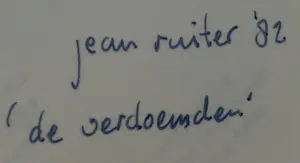 jean ruiter '82
'de verdoemden'